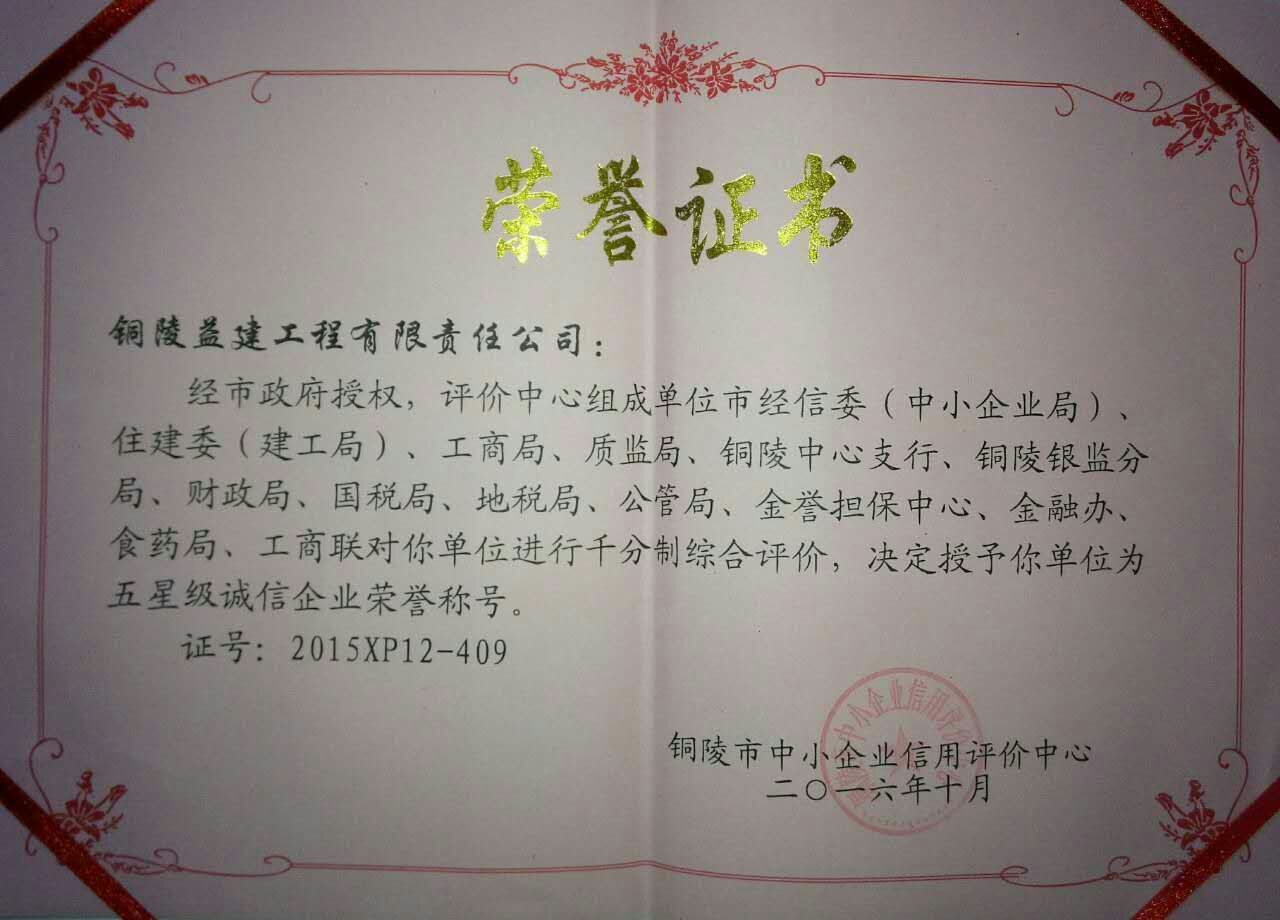 荣誉证书
铜陵益建工程有限责任公司：
经市政府授权，评价中心组成单位市经信委（中小企业局）、
住建委（建工局）、工商局、质监局、铜陵中心支行、铜陵银监分
局、财政局、国税局、地税局、公管局、金誉担保中心、金融办、
食药局、工商联对你单位进行千分制综合评价，决定授予你单位为
五星级诚信企业荣誉称号。
证号：2015XP12-409
中小企业信用评价
铜陵市中小企业信用评价中心
二〇一六年十月